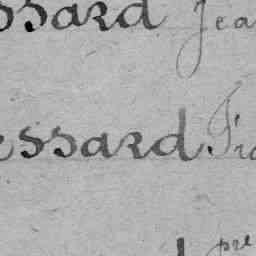 ssard Jea
essard Fra
pre